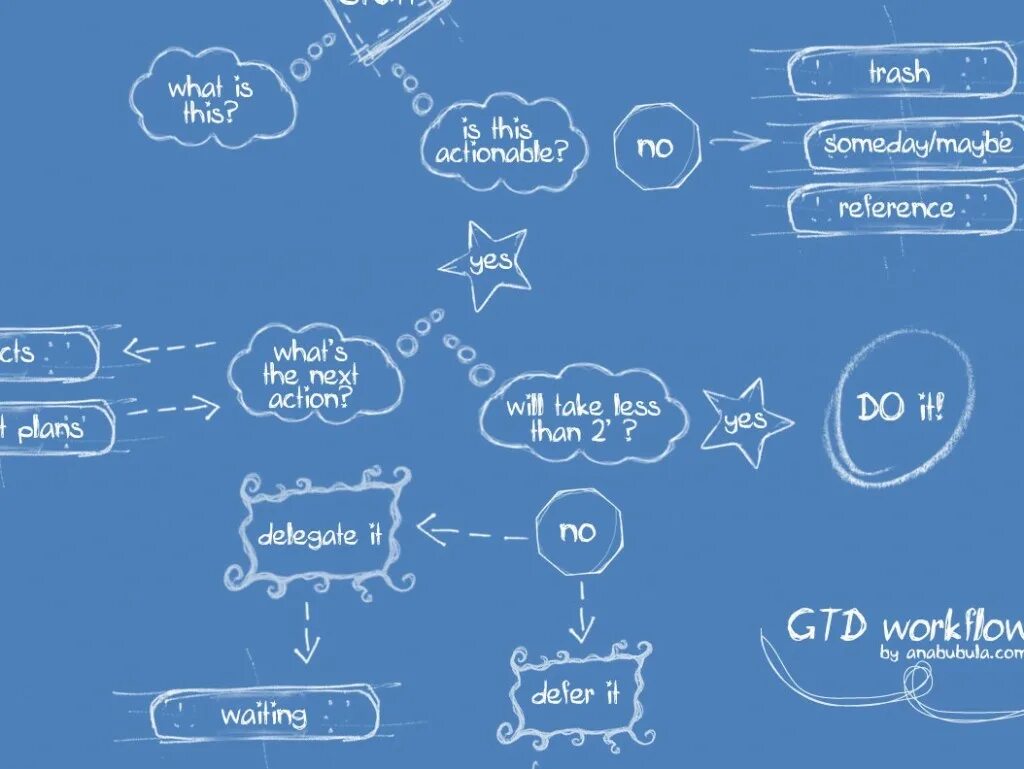 what is
this?
is this
actionable?
no
trash
someday/maybe
reference
yes
cts
what's
the next
action?
t plans
will take less
than 2' ?
yes
DO it!
delegate it
no
waiting
defer it
GTD workflow
by anabubula.com